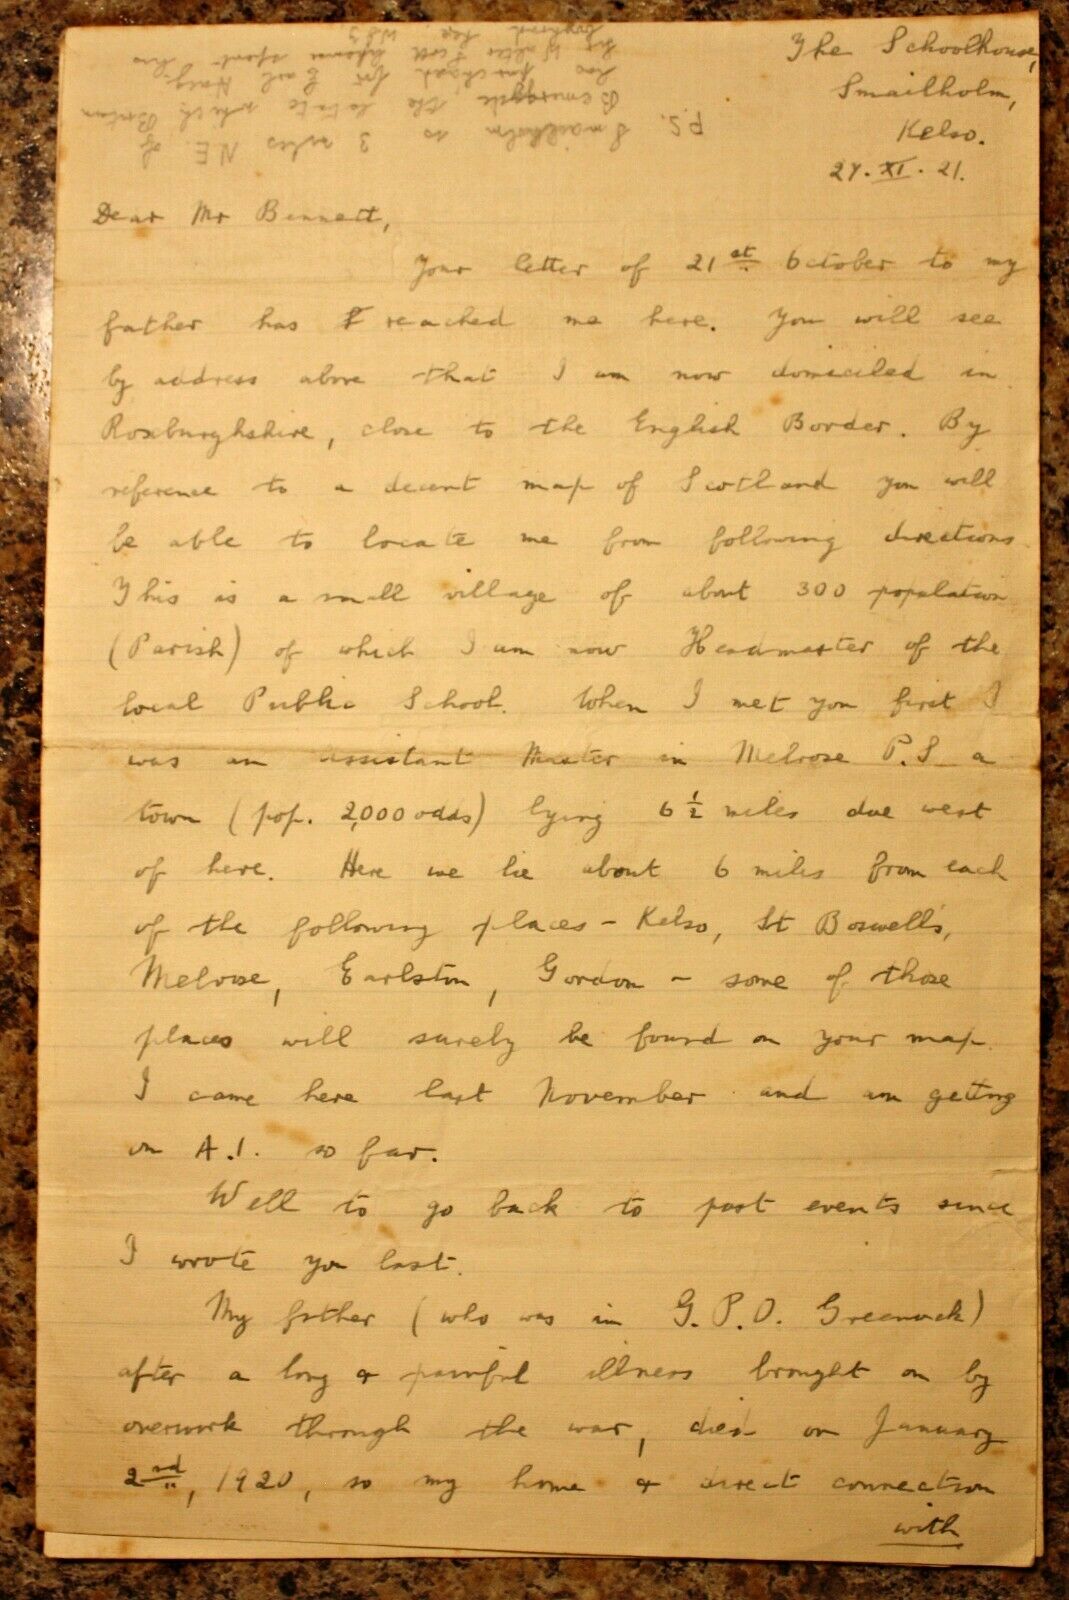 The Schoolhouse,
Smailholm,
Kelso.
27. XI. 21.
P.S. Smailholm is 3 miles N.E. of
Bemersyde, the estate which Britain
has purchased for Earl Haig.
Sir Walter Scott spent his
boyhood here
Dear Mr Bennett,
Your letter of 21st October to my
father has reached me here. You will see
by address above that I am now domiciled in
Roxburghshire, close to the English Border. By
reference to a decent map of Scotland you will
be able to locate me from following directions
This is a small village of about 300 population
(Parish) of which I am now Headmaster of the
local Public School. When I met you first I
was an assistant Master in Melrose P.S a
town (pop. 2,000 odds) lying 6 1/2 miles due west
of here. Here we lie about 6 miles from each
of the following places - Kelso, St Boswell's,
Melrose, Earlston, Gordon - some of those
places will surely be found on your map.
I came here last November and am getting
on A.1. so far.
Well to go back to past events since
I wrote you last.
My father (who was in G.P.O. Greenock)
after a long & painful illness brought on by
overwork through the war, died on January
2nd, 1920, so my home & direct connection
with